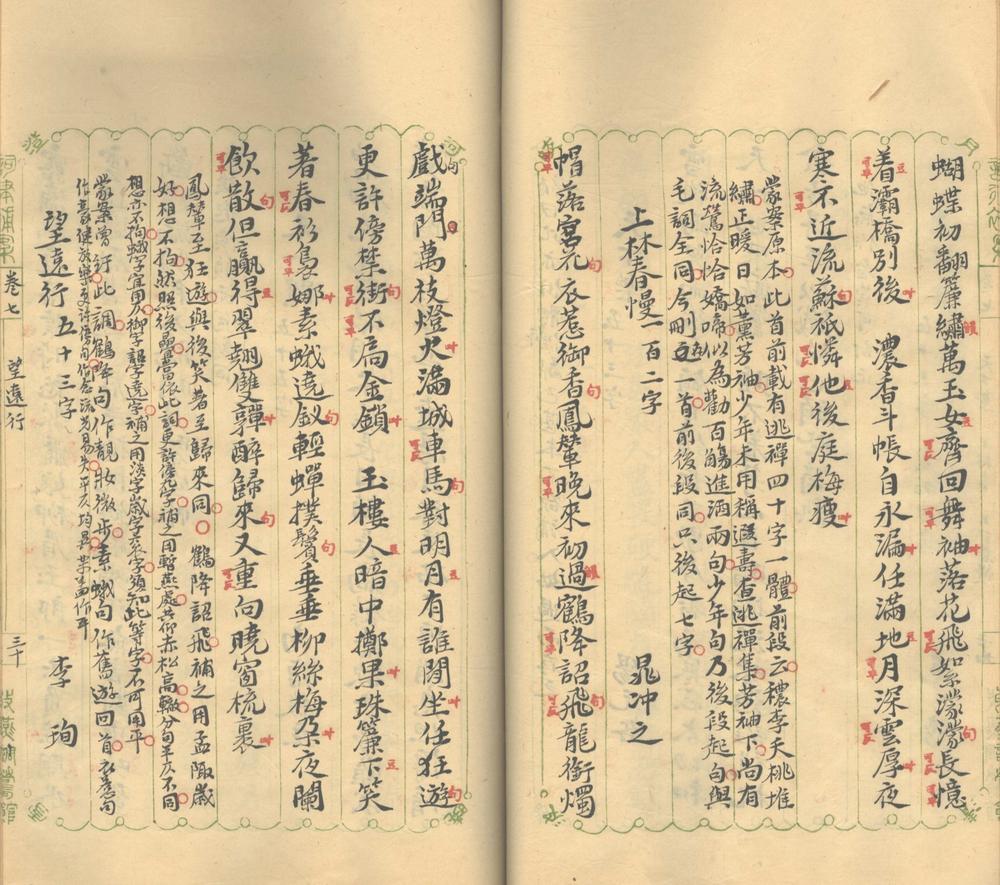 蝴蝶初翻簾繡萬玉女齊回舞袖落花飛絮濛濛長憶
着灞橋別後　濃香斗帳自永漏任滿地月深雲厚夜
寒不近流蘇祇憐他後庭梅瘦
蒙案原本此首前載有逃禪四十字一體前段云穠李夭桃堆
繡正暖日如薰芳袖少年未用稱遐壽查逃禪集芳袖下尚有
流鶯恰恰嬌啼似為勸百觴進酒兩句少年句乃後段起句與
毛詞全同今刪五一首前後段同只後起七字
上林春慢一百二字　晁冲之
帽落宮花衣惹御香鳳輦晚來初過鶴降詔飛龍銜燭
戲端門萬枝燈火滿城車馬對明月有誰閒坐任狂遊
更許傍禁街不扃金鎖　玉樓人暗中擲果珠簾下笑
著春衫裊娜素蛾遶釵輕蟬撲鬢垂垂柳絲梅朶夜闌
飲散但贏得翠翹雙嚲醉歸來又重向曉窗梳裹
鳳輦至狂遊與後笑著至歸來同　鶴降詔飛補之用孟陬歲
好想不拘然照後晶當依此詞更許傍禁字補之用暫燕處共仰赤松高轍分句平仄不同
想亦不拘蛾字宜用仄御字詔字遶字補之用淡字歲字表字須知此等字不可用平
蒙案曾紆此調鶴降句作靚妝微步素蛾句作舊遊回首衣惹句
望遠行　五十三字　李珣
卷七
望遠行
三十